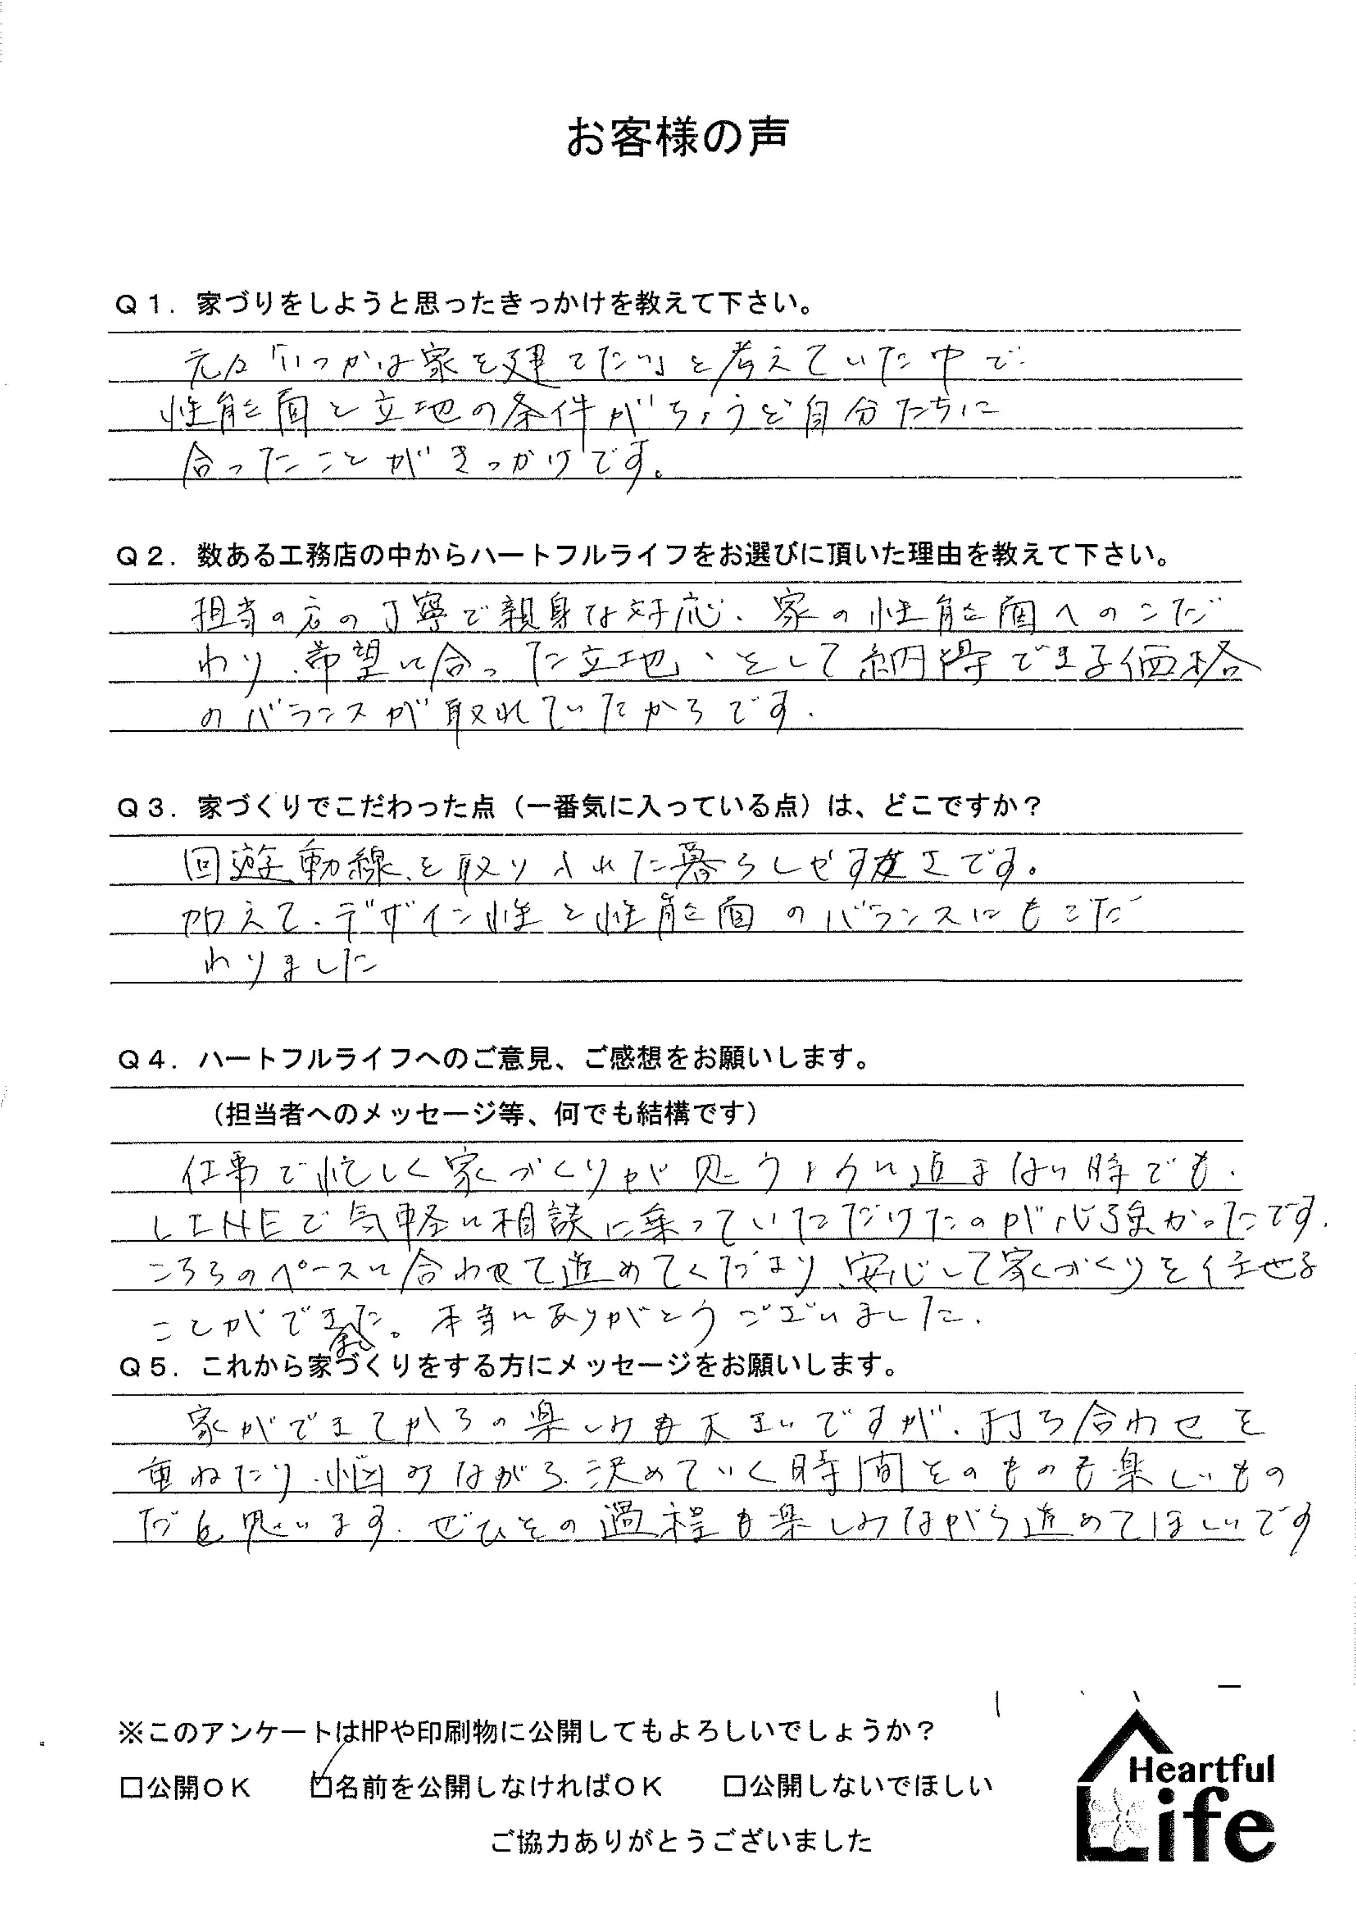 お客様の声
Q1. 家づりをしようと思ったきっかけを教えて下さい。
元々「いつかは家を建てたい」と考えていた中で
性能面と立地の条件がちょうど自分たちに
合ったことがきっかけです。
Q2. 数ある工務店の中からハートフルライフをお選びに頂いた理由を教えて下さい。
担当の方の丁寧で親身な対応、家の性能面へのこだ
わり、希望に合った立地、そして納得できる価格
のバランスが取れていたからです。
Q3. 家づくりでこだわった点（一番気に入っている点）は、どこですか？
回遊動線を取り入れた暮らしやすさです。
加えて、デザイン性と性能面のバランスにもこだ
わりました
Q4. ハートフルライフへのご意見、ご感想をお願いします。
（担当者へのメッセージ等、何でも結構です）
仕事で忙しく家づくりが思うように進まない時でも、
LINEで気軽に相談に乗っていただけたのが心強かったです。
こちらのペースに合わせて進めてくださり、安心して家づくりを任せる
ことができました。本当にありがとうございました。
Q5. これから家づくりをする方にメッセージをお願いします。
家ができてからの楽しみも大きいですが、打ち合わせを
重ねたり、悩みながら決めていく時間そのものも楽しいもの
だと思います。ぜひその過程も楽しみながら進めてほしいです
※このアンケートはHPや印刷物に公開してもよろしいでしょうか？
□公開OK □名前を公開しなければOK □公開しないでほしい
ご協力ありがとうございました
Heartful
Life